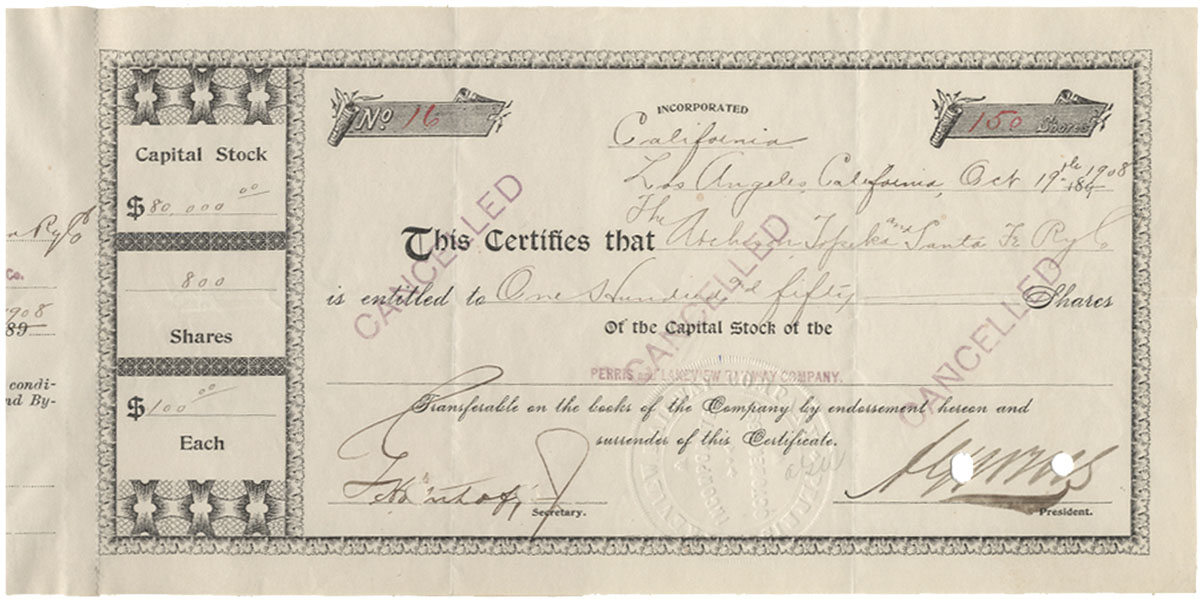 No 16
INCORPORATED
150 Shares
California
Los Angeles, California, Oct 19th 1908
189
Capital Stock
$ 80,000 00
800
Shares
$ 100 00
Each
The
This Certifies that Atchison Topeka and Santa Fe Ry Co
is entitled to One Hundred & fifty Shares
Of the Capital Stock of the
PERRIS and LAKEVIEW RAILWAY COMPANY.
Transferable on the books of the Company by endorsement hereon and
surrender of this Certificate.
Secretary.
President.
CANCELLED
CANCELLED
CANCELLED
Ry Co
Co.
1908
89
condi-
nd By-